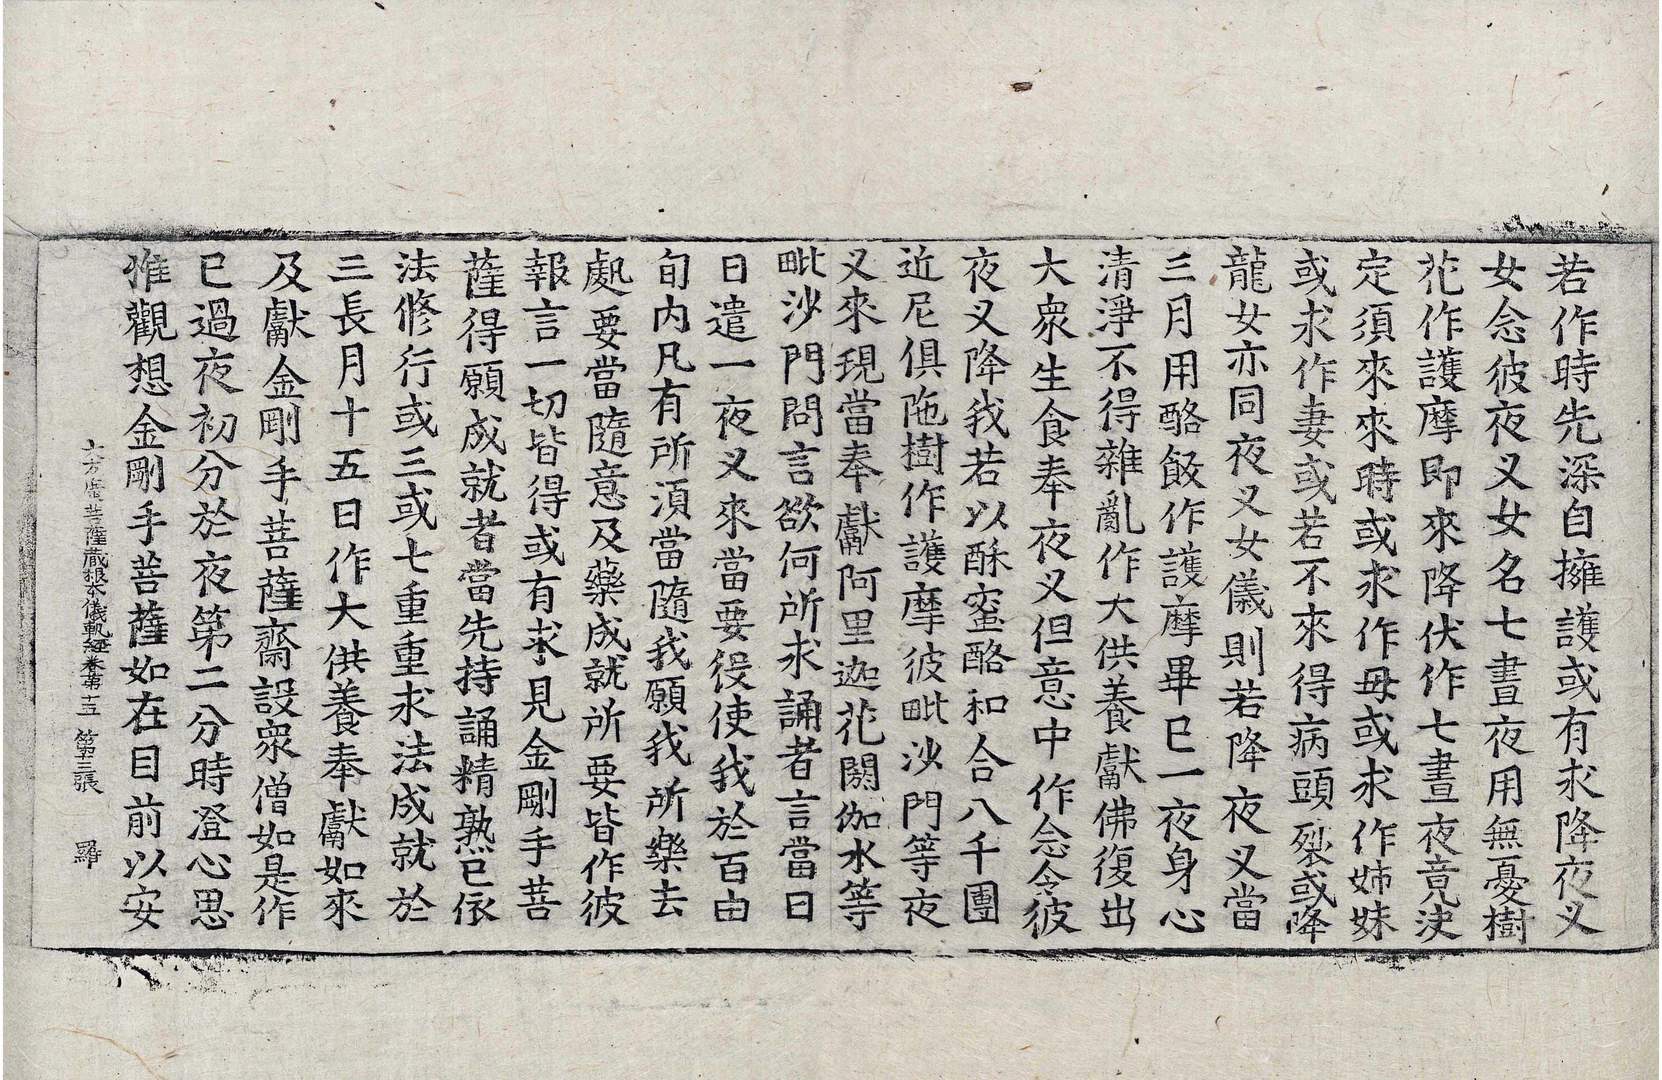 若作時先深自擁護或有求降夜叉
女念彼夜叉女名七晝夜用無憂樹
花作護摩即來降伏作七晝夜竟決
定須來來時或求作母或求作姉妹
或求作妻或若不來得病頭裂或降
龍女亦同夜叉女儀則若降夜叉當
三月用酪飯作護摩畢已一夜身心
清淨不得雜亂作大供養獻佛復出
大衆生食奉夜叉但意中作念令彼
夜叉降我若以酥蜜酪和合八千團
近尼俱陁樹作護摩彼毗沙門等夜
叉來現當奉獻阿里迦花閼伽水等
毗沙門問言欲何所求誦者言當日
日遣一夜叉來當要役使我於百由
旬内凡有所湏當隨我願我所樂去
處要當隨意及藥成就所要皆作彼
報言一切皆得或有求見金剛手菩
薩得願成就者當先持誦精熟已依
法修行或三或七重重求法成就於
三長月十五日作大供養奉獻如來
及獻金剛手菩薩齋設衆僧如是作
已過夜初分於夜第二分時澄心思
惟觀想金剛手菩薩如在目前以安
大方廣菩薩藏根本儀軌経卷第十五 第三張 羅